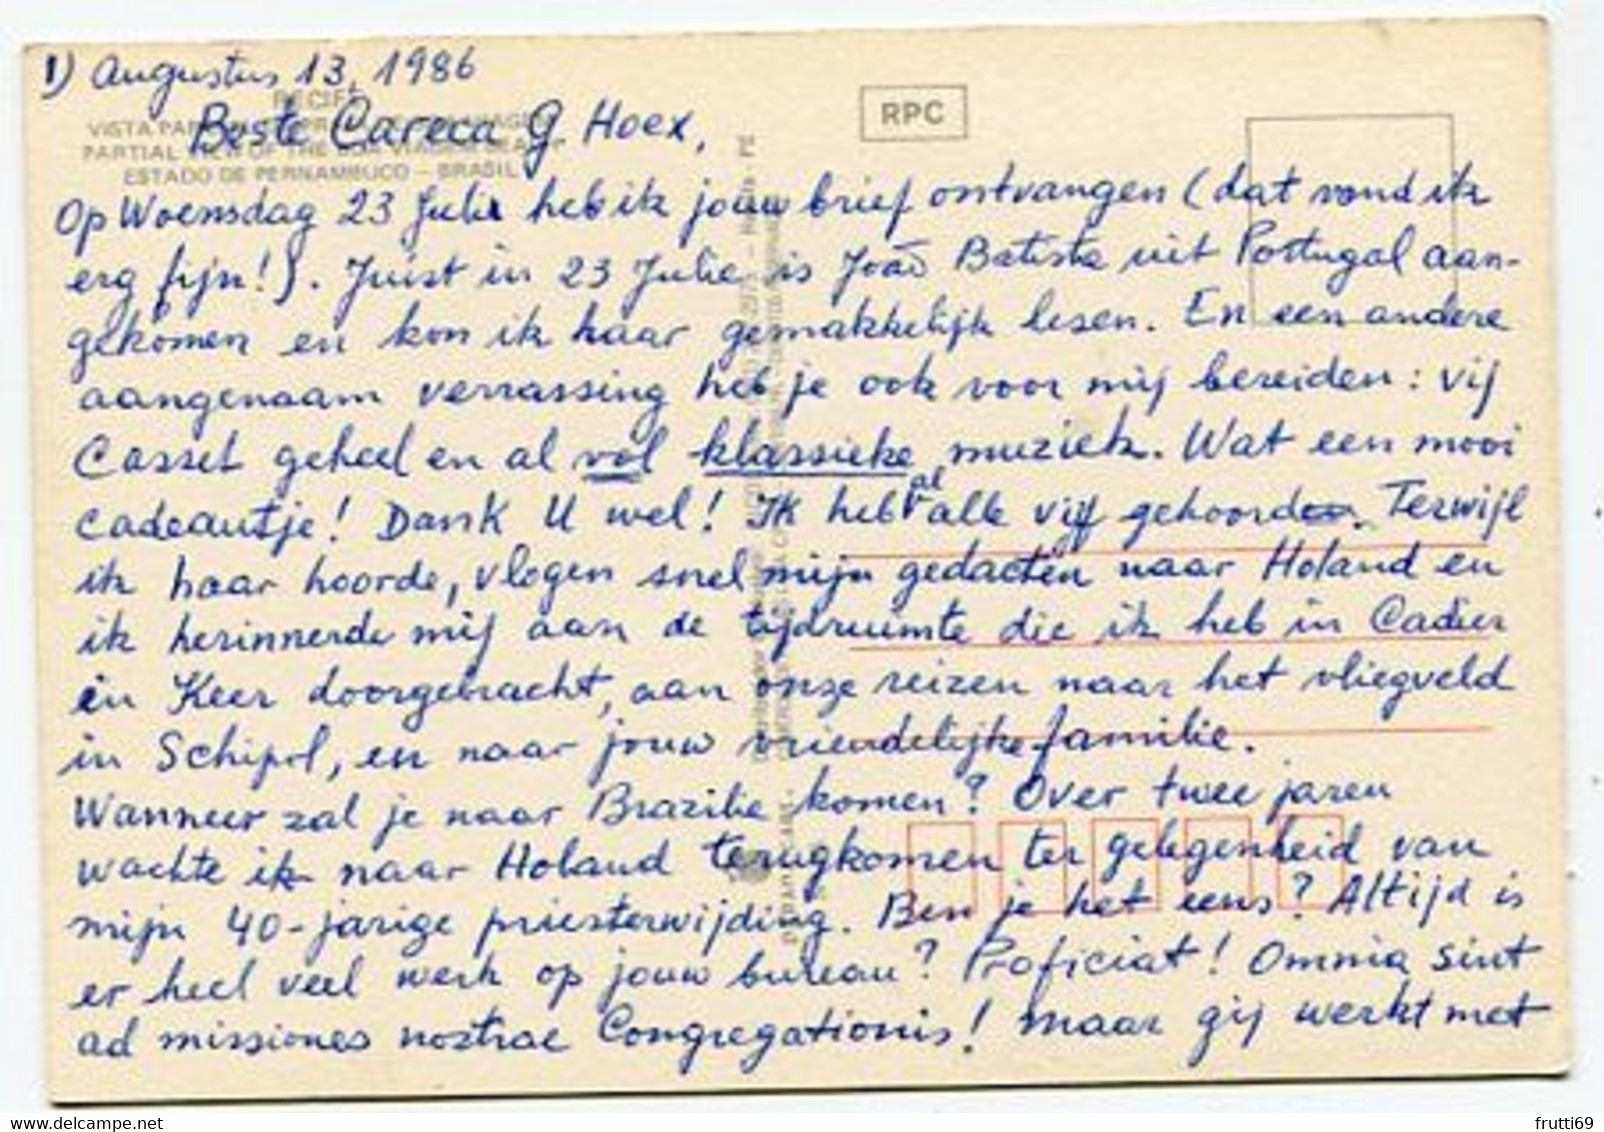 1) Augustus 13, 1986
RPC
RECIFE
Beste Careca G. Hoex,
VISTA
PARTIAL VIEW OF THE
ESTADO DE PERNAMBUCO – BRASIL
Op Woensdag 23 Julie heb ik jouw brief ontvangen (dat vond ik
erg fijn!). Juist in 23 Julie is João Batista uit Portugal aan-
gekomen en kon ik haar gemakkelijk lesen. En een andere
aangenaam verrassing heb je ook voor mij bereiden: vijf
Casset geheel en al vol klassieke muziek. Wat een mooi
cadeautje! Dank U wel! Ik heb al alle vijf gehoord. Terwijl
ik haar hoorde, vlogen snel mijn gedacten naar Holand en
ik herinnerde mij aan de tijdruimte die ik heb in Cadier
en Keer doorgebracht, aan onze reizen naar het vliegveld
in Schipol, en naar jouw vriendelijke familie.
Wanneer zal je naar Brazilie komen? Over twee jaren
wachte ik naar Holand terugkomen ter gelegenheid van
mijn 40-jarige priesterwijding. Ben je het eens? Altijd is
er heel veel werk op jouw bureau? Proficiat! Omnia sint
ad missiones nostrae Congregationis! Maar gij werkt met
frutti69